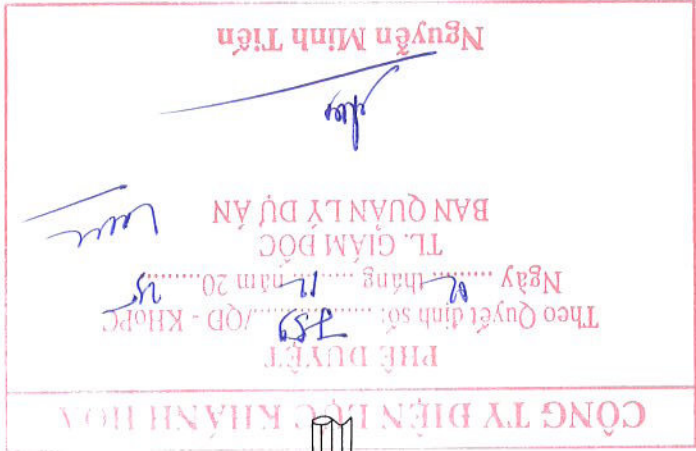 CÔNG TY ĐIỆN LỰC KHÁNH HÒA
PHÊ DUYỆT
Theo Quyết định số: ........./QĐ - KHoPC
Ngày ........ tháng ........ năm 20........
TL. GIÁM ĐỐC
BAN QUẢN LÝ DỰ ÁN
Nguyễn Minh Tiến